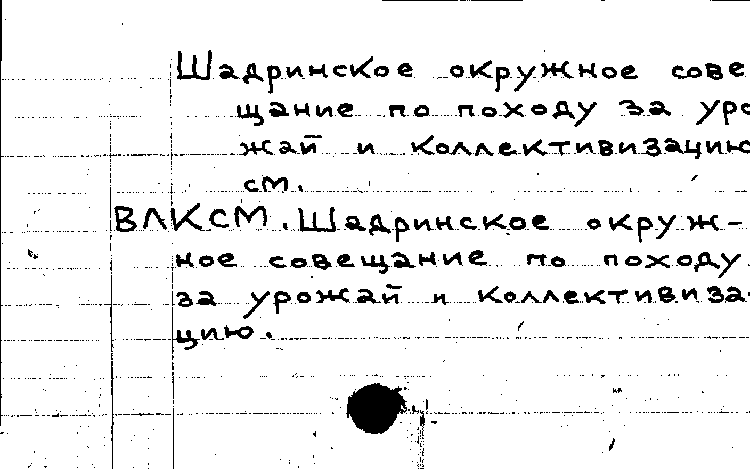 Шадринское окружное сове
щание по походу за уро
жай и коллективизацию
см.
ВЛКСМ. Шадринское окруж-
ное совещание по походу
за урожай и коллективиза-
цию.